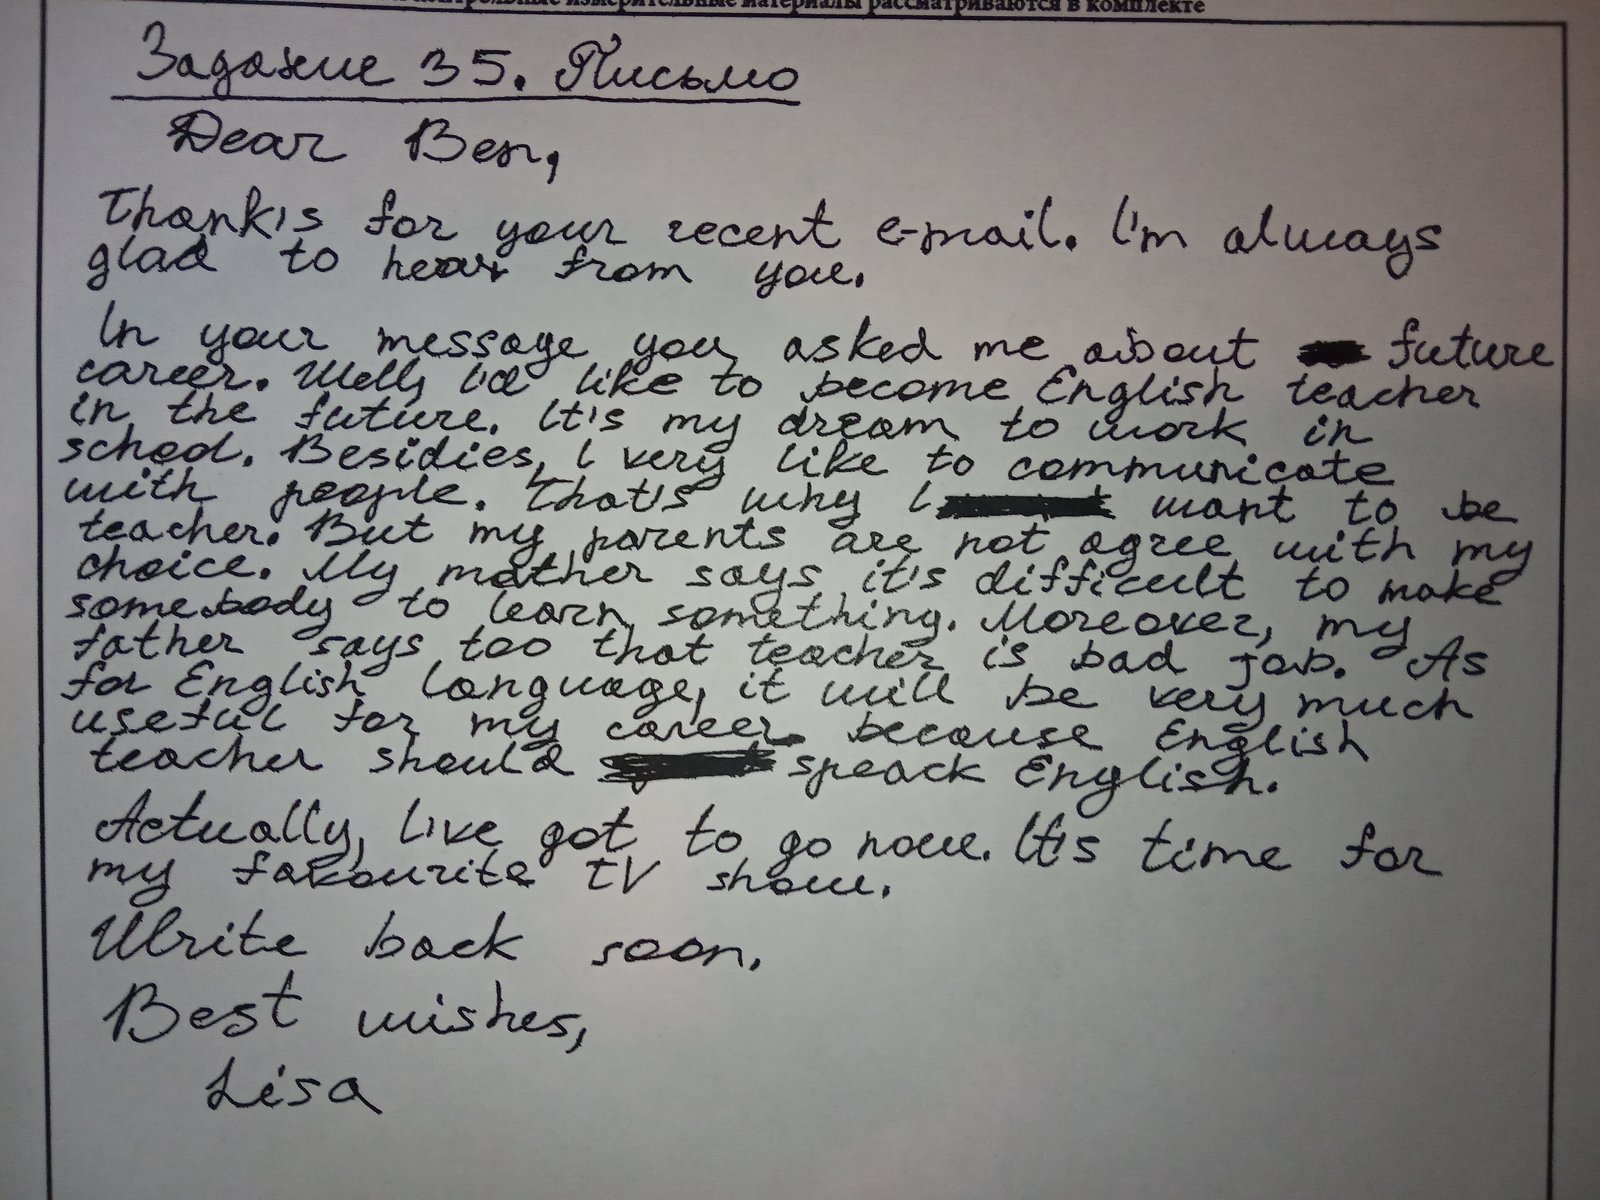 контрольные измерительные материалы рассматриваются в комплекте
Задание 35. Письмо
Dear Ben,
Thank's for your recent e-mail. I'm always
glad to hear from you.
In your message you asked me about future
career. Well, I'd like to become English teacher
in the future. It's my dream to work in
school. Besidies, I very like to communicate
with people. That's why I want to be
teacher. But my parents are not agree with my
choice. My mother says it's difficult to make
somebody to learn something. Moreover, my
father says too that teacher is bad job. As
for English language, it will be very much
useful for my career because English
teacher should speack English.
Actually, I've got to go now. It's time for
my favourite TV show.
Write back soon.
Best wishes,
Lisa